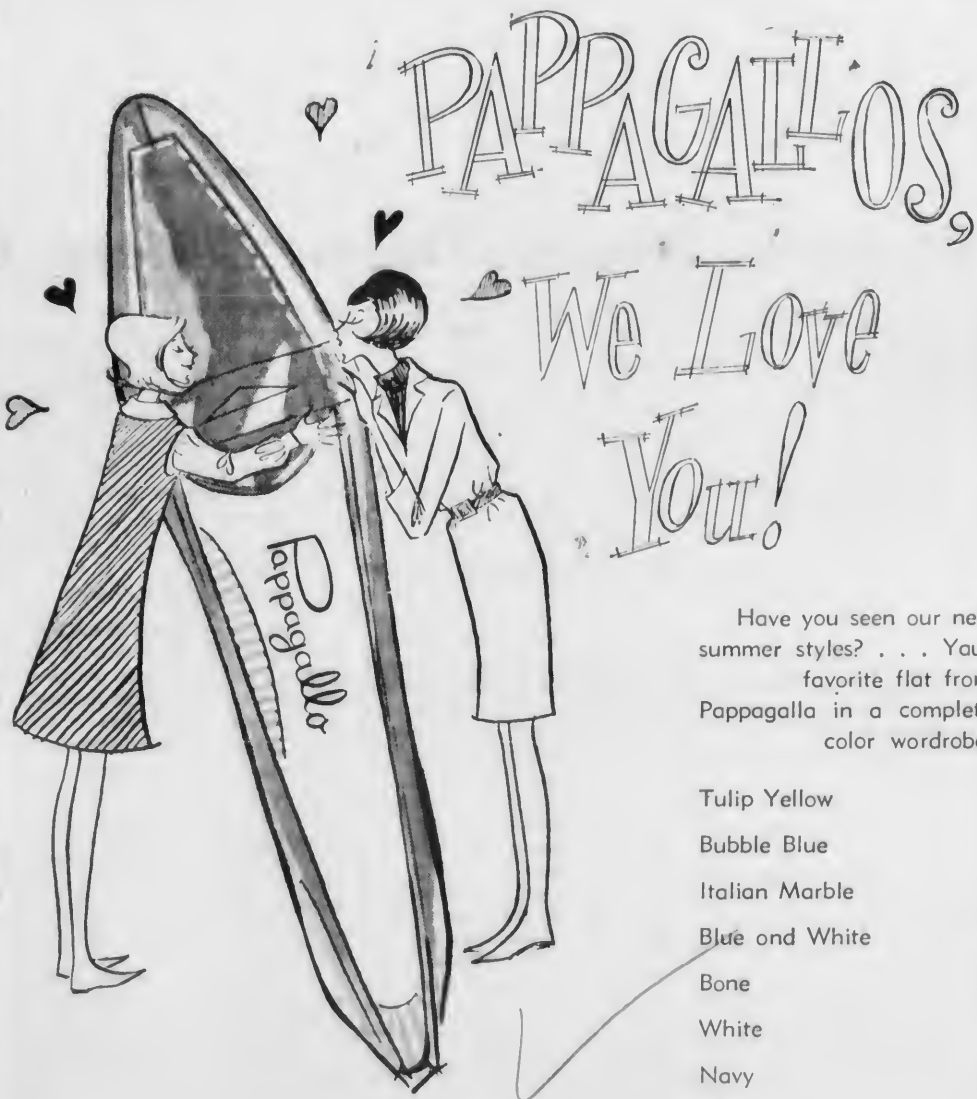 PAPPAGALLOS,
We Love
You!
Pappagallo
Have you seen our ne
summer styles? . . . You
favorite flat fro
Pappagalla in a complet
color wordrobe
Tulip Yellow
Bubble Blue
Italian Marble
Blue ond White
Bone
White
Navy